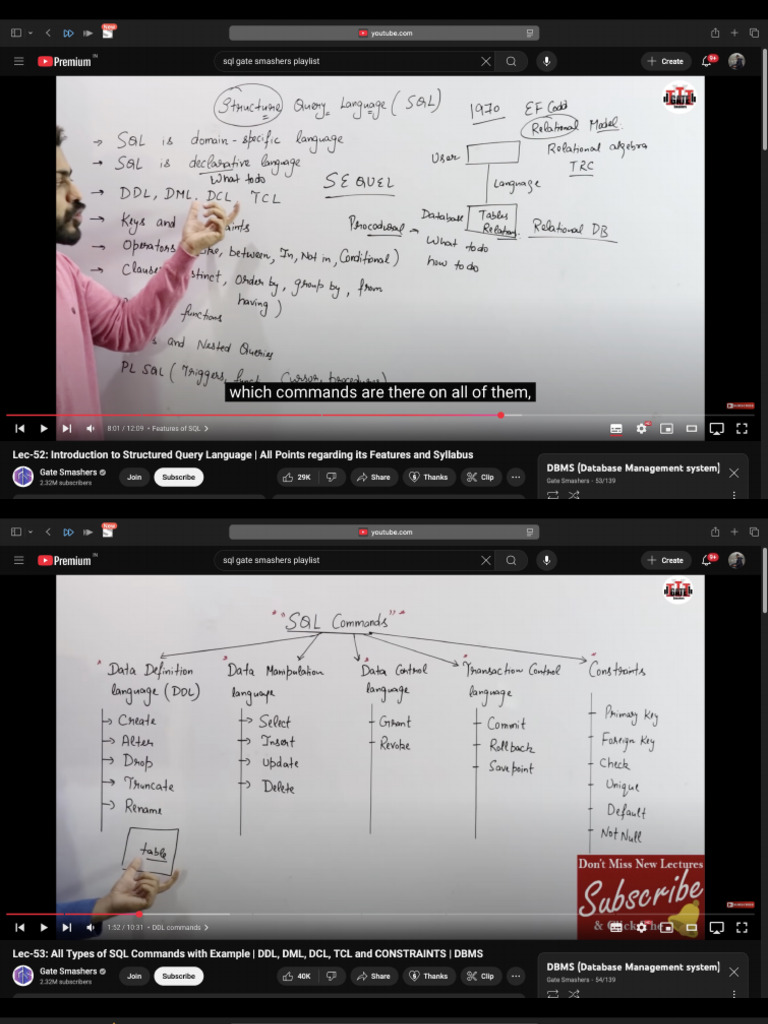 New
youtube.com
Premium IN
sql gate smashers playlist
Create
9+
GATE
Structure Query Language (SQL)
→ SQL is domain-specific language
→ SQL is declarative language
What to do
→ DDL, DML, DCL, TCL
SEQUEL
→ Keys and
→ Operators between, In, Not in, Conditional)
→ Clauses Order by, group by, from
having)
functions
and Nested Queries
PL SQL (Triggers, Cursor,
1970 EF Codd
Relational Model
Relational algebra
TRC
User
Language
Database
Tables
Relation
Relational DB
Procedural →
What to do
how to do
which commands are there on all of them,
8:01 / 12:09 • Features of SQL
Lec-52: Introduction to Structured Query Language | All Points regarding its Features and Syllabus
Gate Smashers
2.32M subscribers
Join
Subscribe
29K
Share
Thanks
Clip
DBMS (Database Management system)
Gate Smashers - 53/139
New
youtube.com
Premium IN
sql gate smashers playlist
Create
9+
GATE
"SQL Commands"
Data Definition
language (DDL)
→ Create
→ Alter
→ Drop
→ Truncate
→ Rename
table
Data Manipulation
language
→ Select
→ Insert
→ Update
→ Delete
Data Control
language
Grant
Revoke
Transaction Control
language
Commit
Rollback
Savepoint
Constraints
Primary Key
Foreign Key
Check
Unique
Default
Not Null
Don't Miss New Lectures
Subscribe
1:52 / 10:31 • DDL commands
Lec-53: All Types of SQL Commands with Example | DDL, DML, DCL, TCL and CONSTRAINTS | DBMS
Gate Smashers
2.32M subscribers
Join
Subscribe
40K
Share
Thanks
Clip
DBMS (Database Management system)
Gate Smashers - 54/139